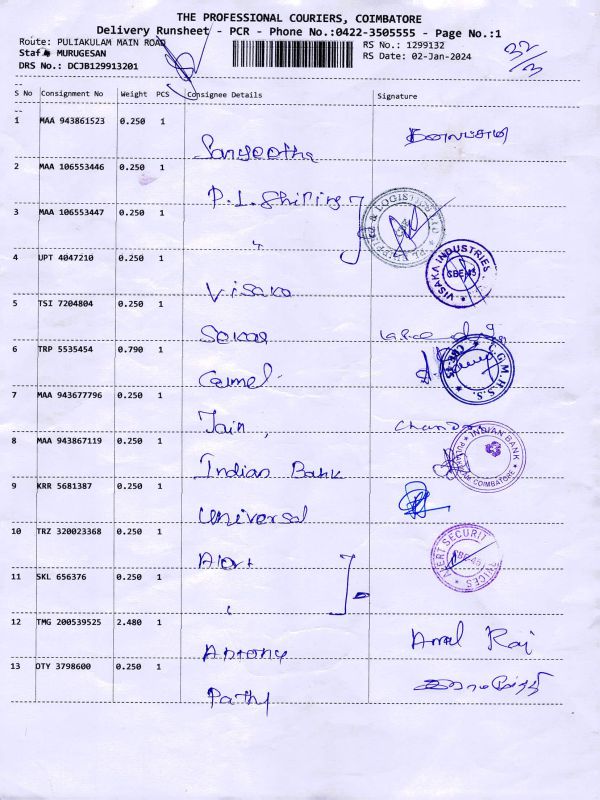 THE PROFESSIONAL COURIERS, COIMBATORE
Delivery Runsheet - PCR - Phone No.:0422-3505555 - Page No.:1
Route: PULIAKULAM MAIN ROAD RS No.: 1299132
Staf MURUGESAN RS Date: 02-Jan-2024
DRS No.: DCJB129913201
32/3
S No Consignment No Weight PCS Consignee Details Signature
1 MAA 943861523 0.250 1 Sangeetha
2 MAA 106553446 0.250 1 P.L. Shiping
3 MAA 106553447 0.250 1 "
4 UPT 4047210 0.250 1 Visaka VISAKA INDUSTRIES CBE-45
5 TSI 7204804 0.250 1 Sekar
6 TRP 5535454 0.790 1 Carmel C.G.M.H.S.S. CBE-45
7 MAA 943677796 0.250 1 Jain,
8 MAA 943867119 0.250 1 Indian Bank INDIAN BANK COIMBATORE
9 KRR 5681387 0.250 1 Universal
10 TRZ 320023368 0.250 1 Alert ALERT SECURIT CBE-45
11 SKL 656376 0.250 1 "
12 TMG 200539525 2.480 1 Antony Amal Raj
13 OTY 3798600 0.250 1 Pathy